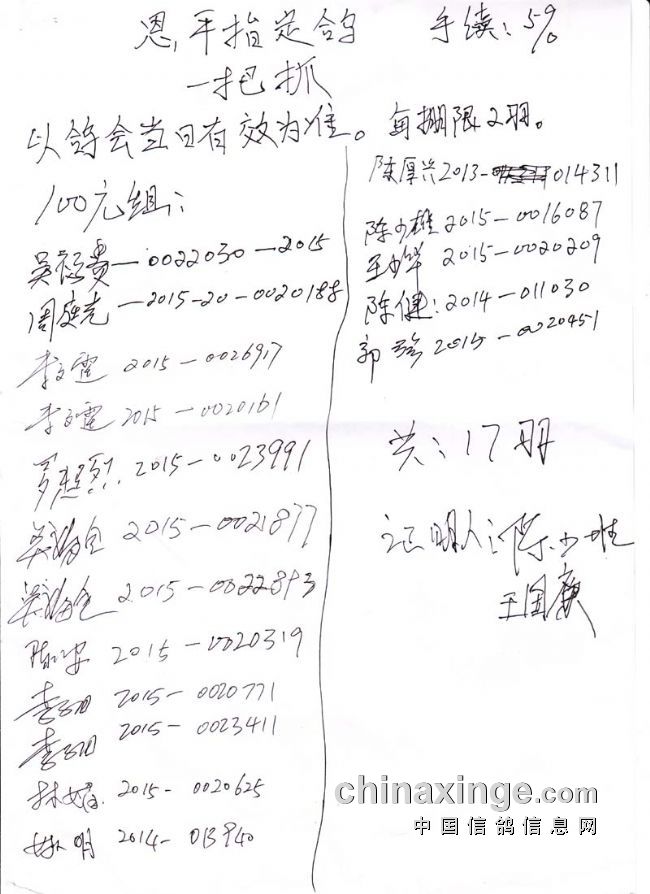 恩平指定鸽 手续：5%
一把抓
以鸽会当日有效为准。每棚限2羽。
100元组：
吴冠贵—0022030—2015
周庭亮—2015-20-0020188
李文霆 2015-0026917
李文霆 2015-0020161
2015-0023991
2015-0021877
2015-0022893
陈 2015-0020319
李 2015-0020771
李 2015-0023411
林 2015-0020625
姚明 2014-013940
陈厚兴2013-014311
陈少雄 2015-0016087
王 2015-0020209
陈健：2014-011030
郭 2015-0020451
共：17羽
证明人：陈少雄
王国
chinaxinge.com
中国信鸽信息网